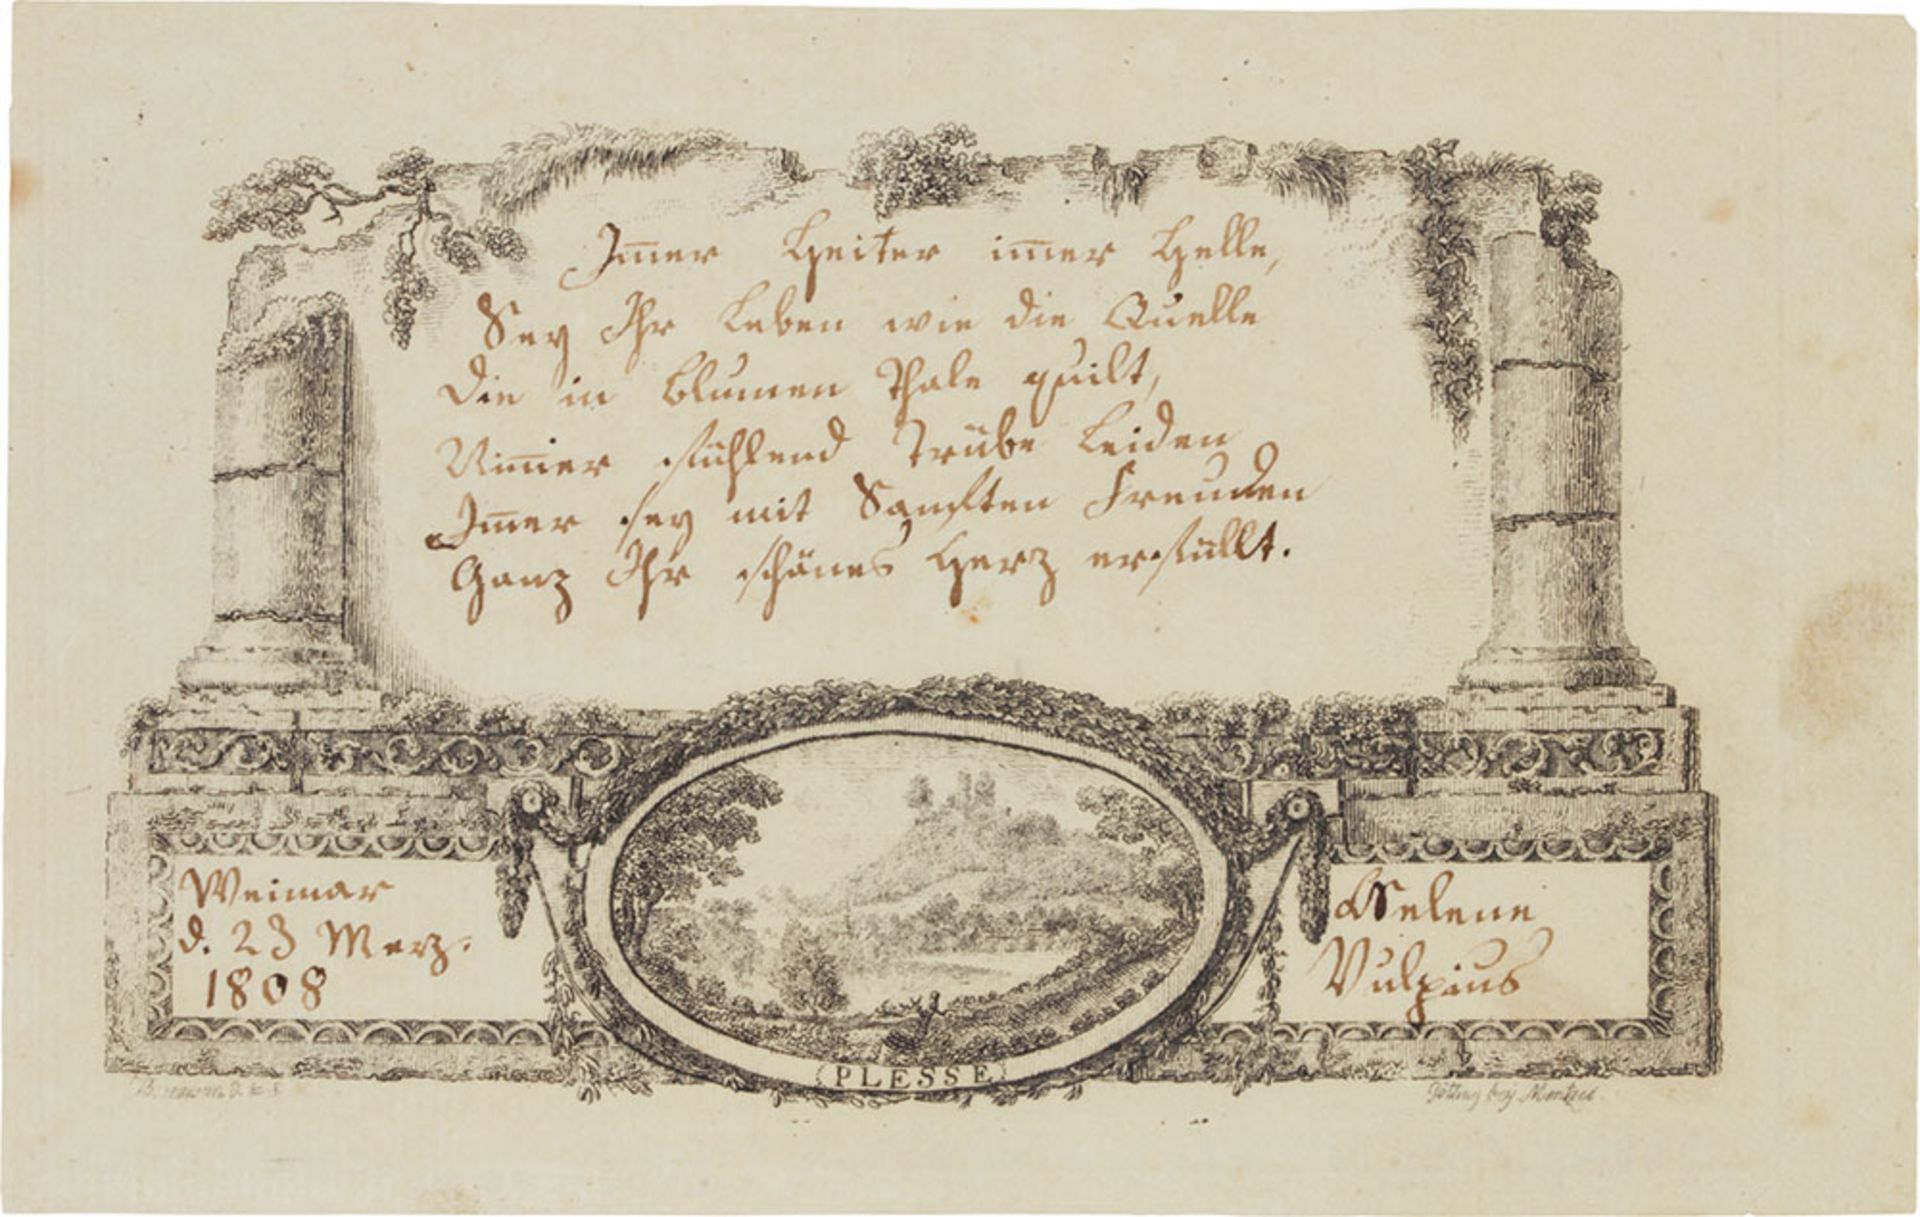 Im̅er Heiter im̅er Helle,
Sey Ihr Leben wie die Quelle
Die in Blumen Thale quilt,
Nim̅er fühlend Trübe Leiden
Im̅er sey mit Sanften Freuden
Ganz Ihr schönes Herz erfüllt.
Weimar
d. 23 Merz.
1808
Selene
Vulpius
PLESSE
Götting bey